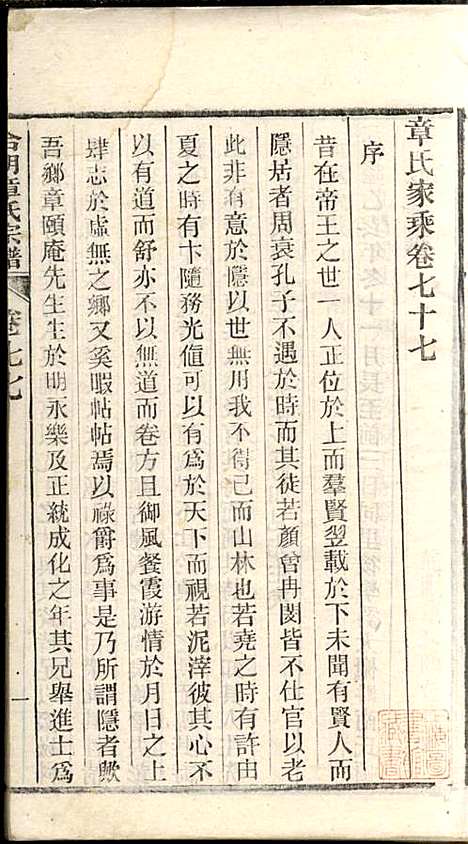 章氏家乘卷七十七
序
昔在帝王之世一人正位於上而羣賢翌載於下未聞有賢人而
隱居者周衰孔子不遇於時而其徒若顏曾冉閔皆不仕官以老
此非有意於隱以世無用我不得已而山林也若堯之時有許由
夏之時有卞隨務光值可以有爲於天下而視若泥滓彼其心不
以有道而舒亦不以無道而卷方且御風餐霞游情於月日之上
肆志於虛無之鄉又奚暇帖帖焉以祿爵爲事是乃所謂隱者歟
吾鄉章頤庵先生生於明永樂及正統成化之年其兄舉進士爲
章氏宗譜
卷七七
一
藏書